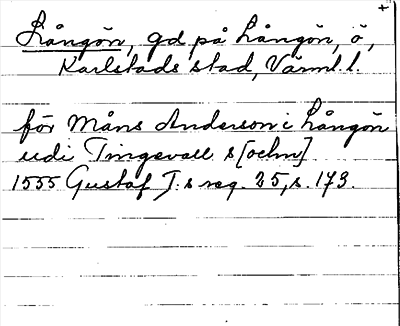 +
Långön, gd på Långön, ö,
Karlstads stad, Värml. l.
för Måns Anderson i Långön
udi Tingevall s[ochn]
1555 Gustaf I:s reg. 25, s. 173.